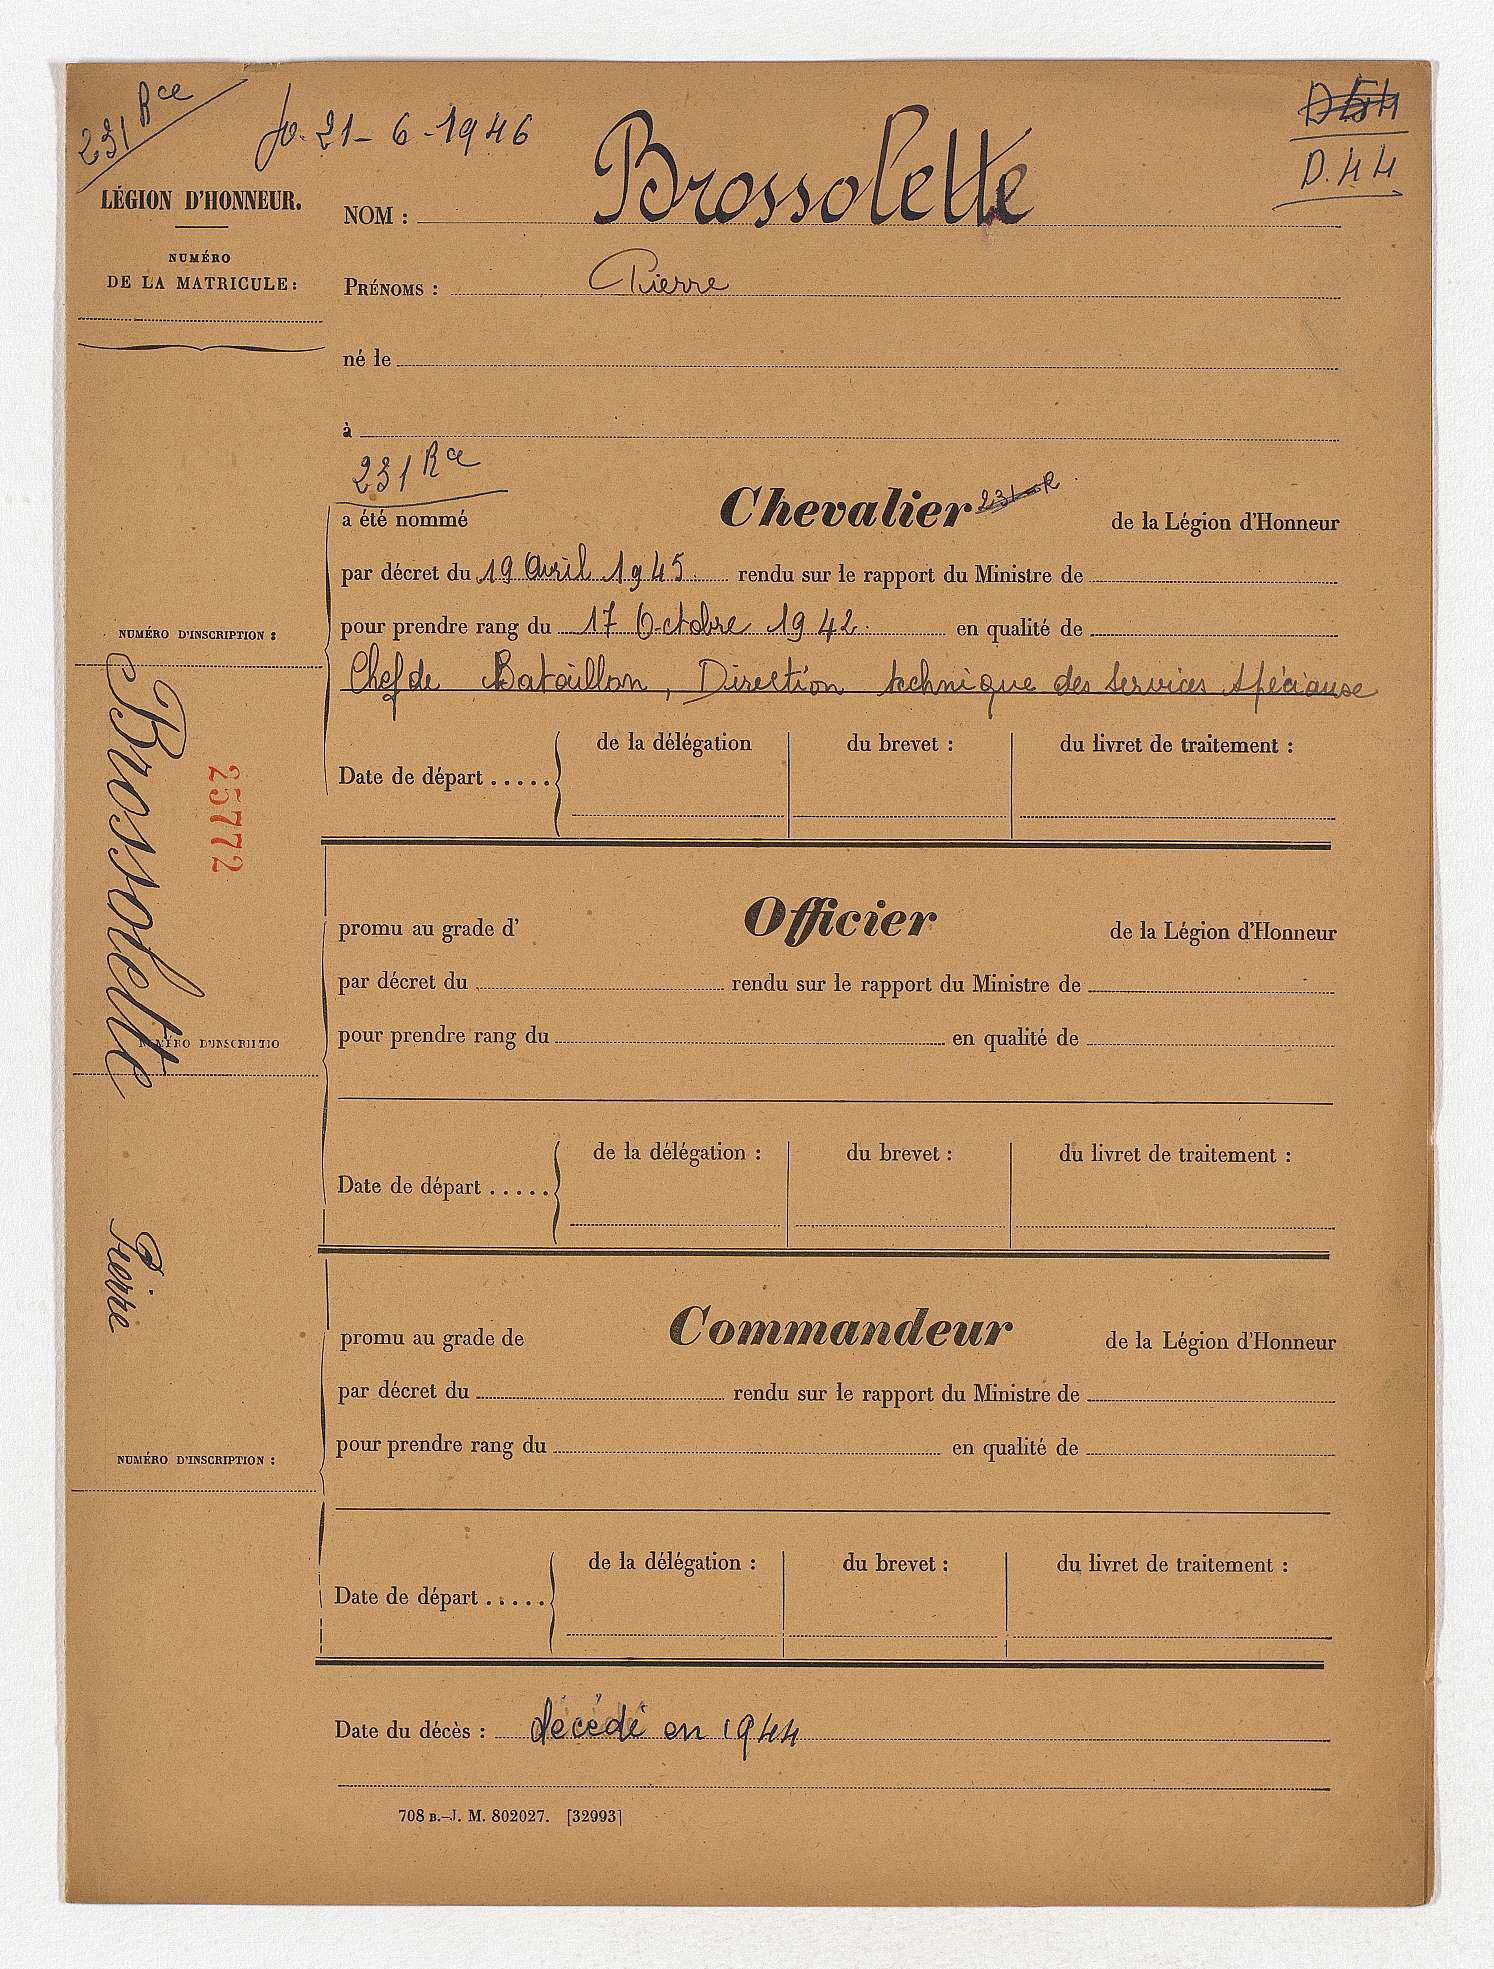 231 Rce
Jo. 21-6-1946
D54
D.44
LÉGION D'HONNEUR.
NUMÉRO
DE LA MATRICULE:
NOM : Brossolette
PRÉNOMS : Pierre
né le
à
231 Rce
a été nommé Chevalier 231 R de la Légion d'Honneur
par décret du 19 Avril 1945. rendu sur le rapport du Ministre de
pour prendre rang du 17 Octobre 1942. en qualité de
Chef de Bataillon, Direction technique des Services Spéciaux
NUMÉRO D'INSCRIPTION :
Date de départ ..... de la délégation du brevet : du livret de traitement :
Brossolette Pierre
25772
promu au grade d' Officier de la Légion d'Honneur
par décret du rendu sur le rapport du Ministre de
pour prendre rang du en qualité de
NUMÉRO D'INSCRIPTIO
Date de départ ..... de la délégation : du brevet : du livret de traitement :
promu au grade de Commandeur de la Légion d'Honneur
par décret du rendu sur le rapport du Ministre de
pour prendre rang du en qualité de
NUMÉRO D'INSCRIPTION :
Date de départ ..... de la délégation : du brevet : du livret de traitement :
Date du décès : décédé en 1944
708 B.–J. M. 802027. [32993]